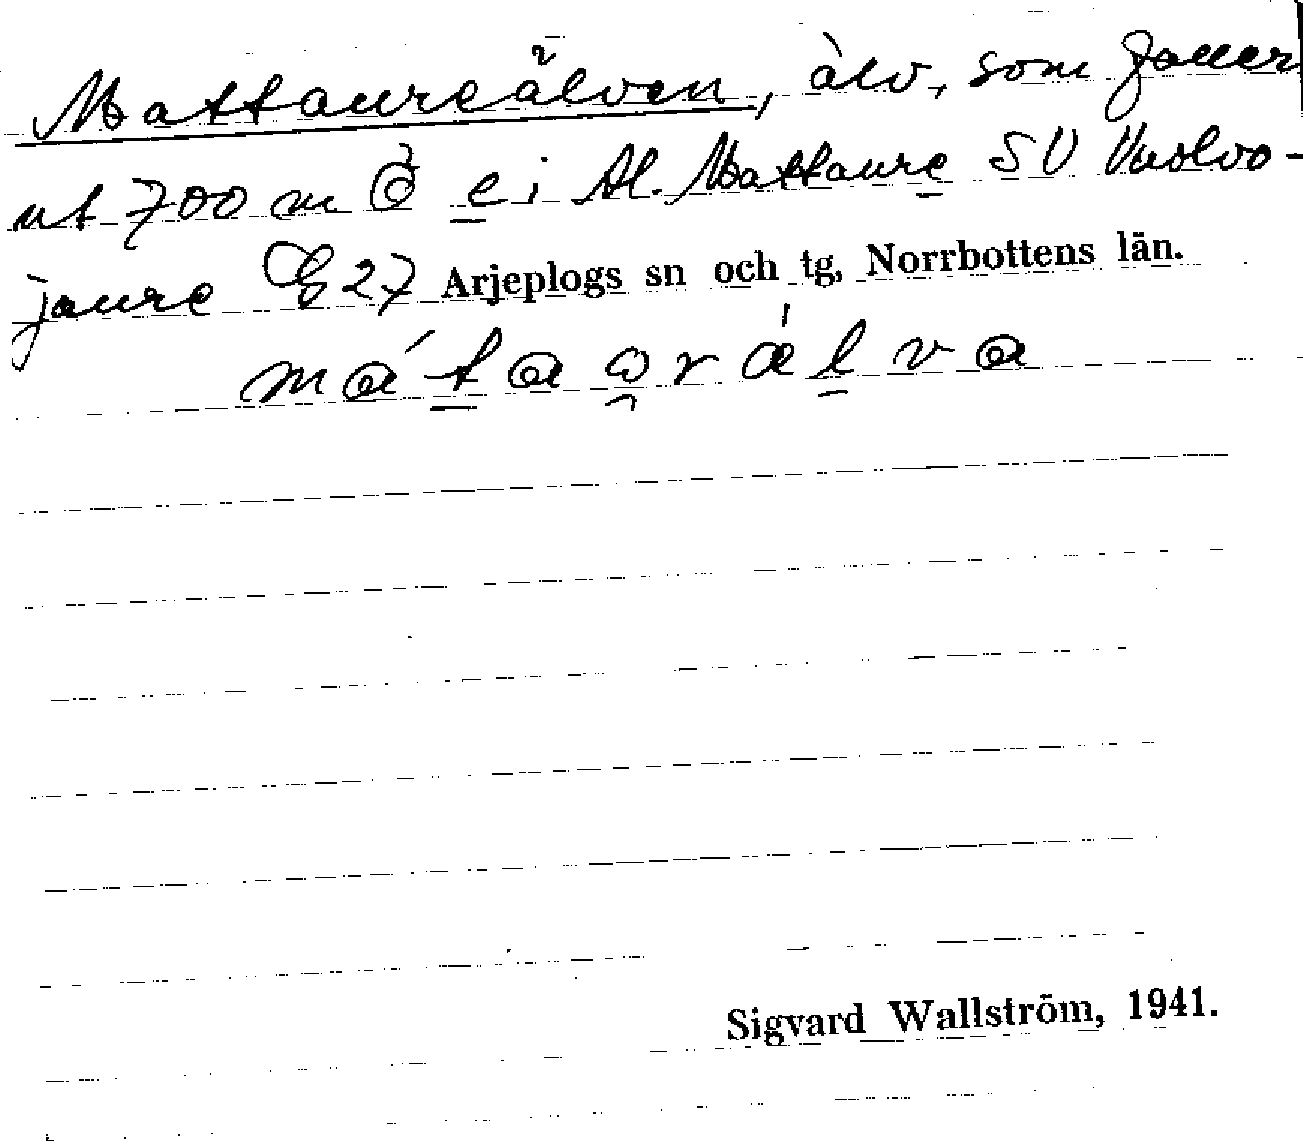 Mattaureälven, älv, som faller
ut 700 m Ö e i St. Mattaure SV Vuolvo-
jaure G 27 Arjeplogs sn och tg, Norrbottens län.
Sigvard Wallström, 1941.